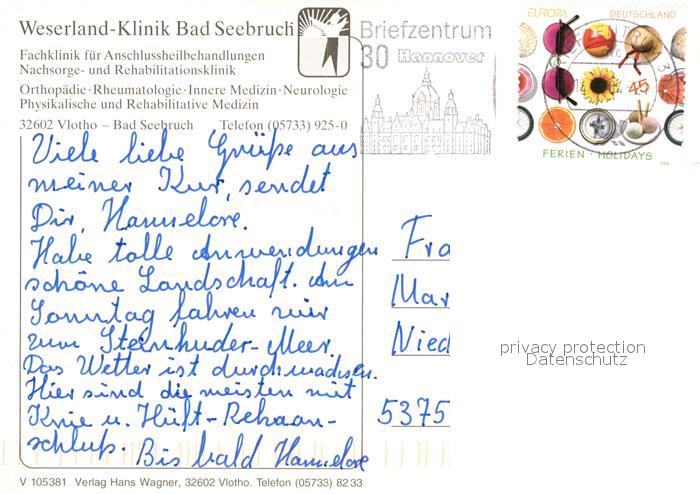 Weserland-Klinik Bad Seebruch
Fachklinik für Anschlussheilbehandlungen
Nachsorge- und Rehabilitationsklinik
Orthopädie · Rheumatologie · Innere Medizin · Neurologie
Physikalische und Rehabilitative Medizin
32602 Vlotho – Bad Seebruch Telefon (05733) 925-0
Briefzentrum
30 Hannover
EUROPA DEUTSCHLAND
45
FERIEN · HOLIDAYS
Viele liebe Grüße aus
meiner Kur, sendet
Dir, Hannelore.
Habe tolle Anwendungen
schöne Landschaft. Am
Sonntag fahren wir
zum Steinhuder-Meer.
Das Wetter ist durchwachsen.
Hier sind die meisten mit
Knie u. Hüft-Rehaan-
schluß. Bis bald Hannelore
Fra
Mar
Nied
5375
privacy protection
Datenschutz
V 105381 Verlag Hans Wagner, 32602 Vlotho. Telefon (05733) 82 33